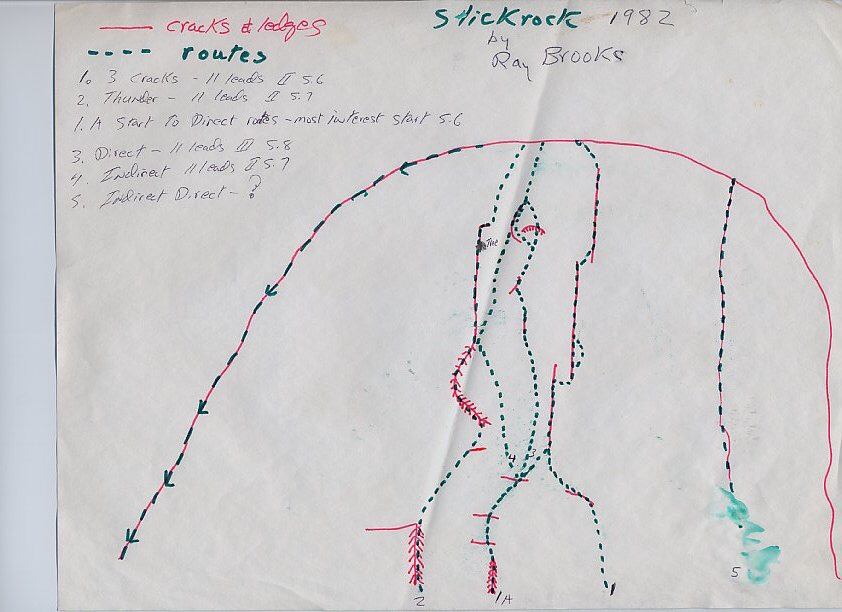 cracks & ledges
routes
Stickrock 1982
by
Ray Brooks
1. 3 Cracks - 11 leads II 5.6
2. Thunder - 11 leads II 5.7
1. A Start To Direct routes - most interest start 5.6
3. Direct - 11 leads III 5.8
4. Indirect 11 leads II 5.7
5. Indirect Direct - ?
The
4
3
2
1A
1
5